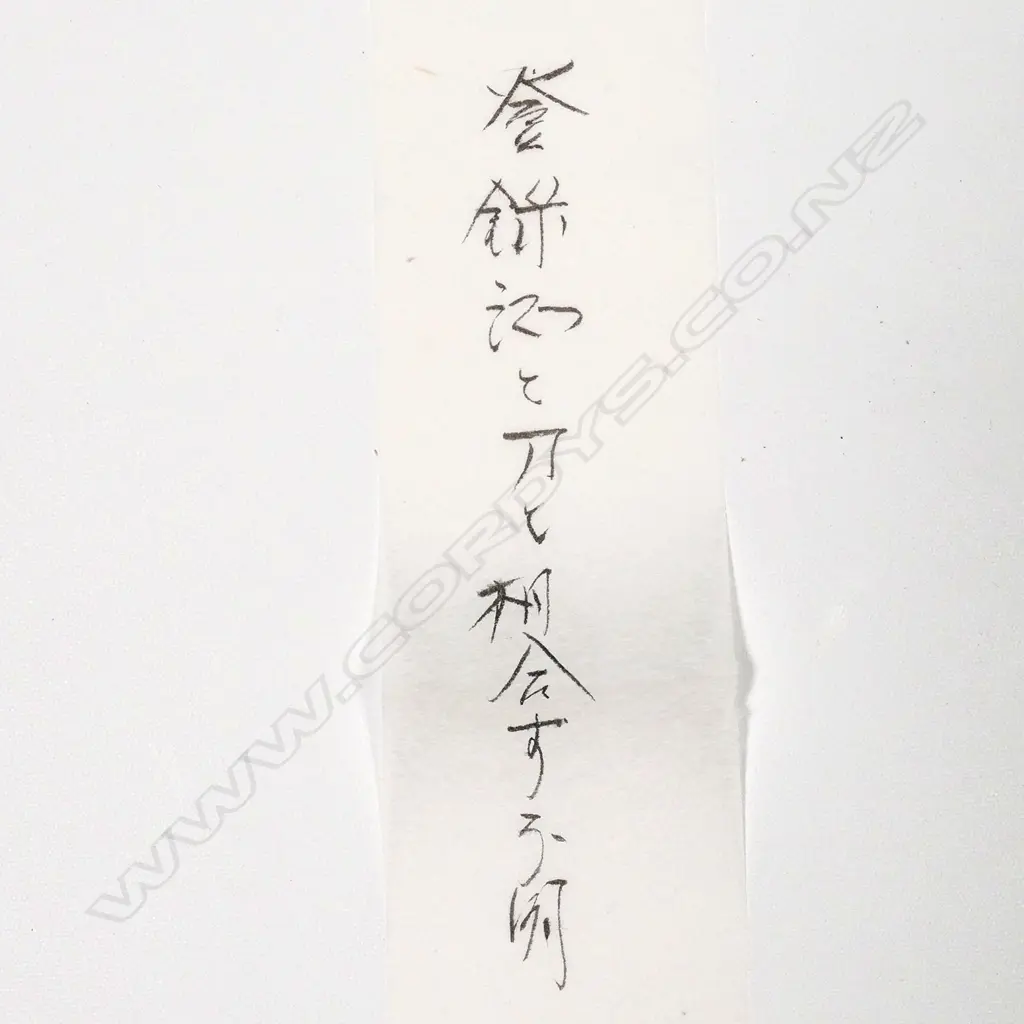 登録証と刀と相合すず不明
WWW.CORDYS.CO.NZ